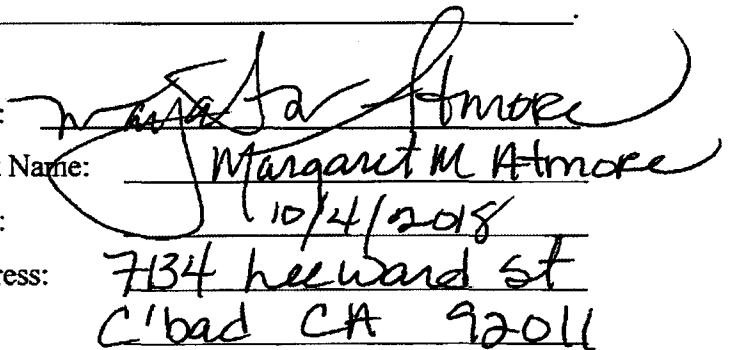 : Margaret Atmore
Name: Margaret M Atmore
: 10/4/2018
ress: 7134 Leeward St
C'bad CA 92011